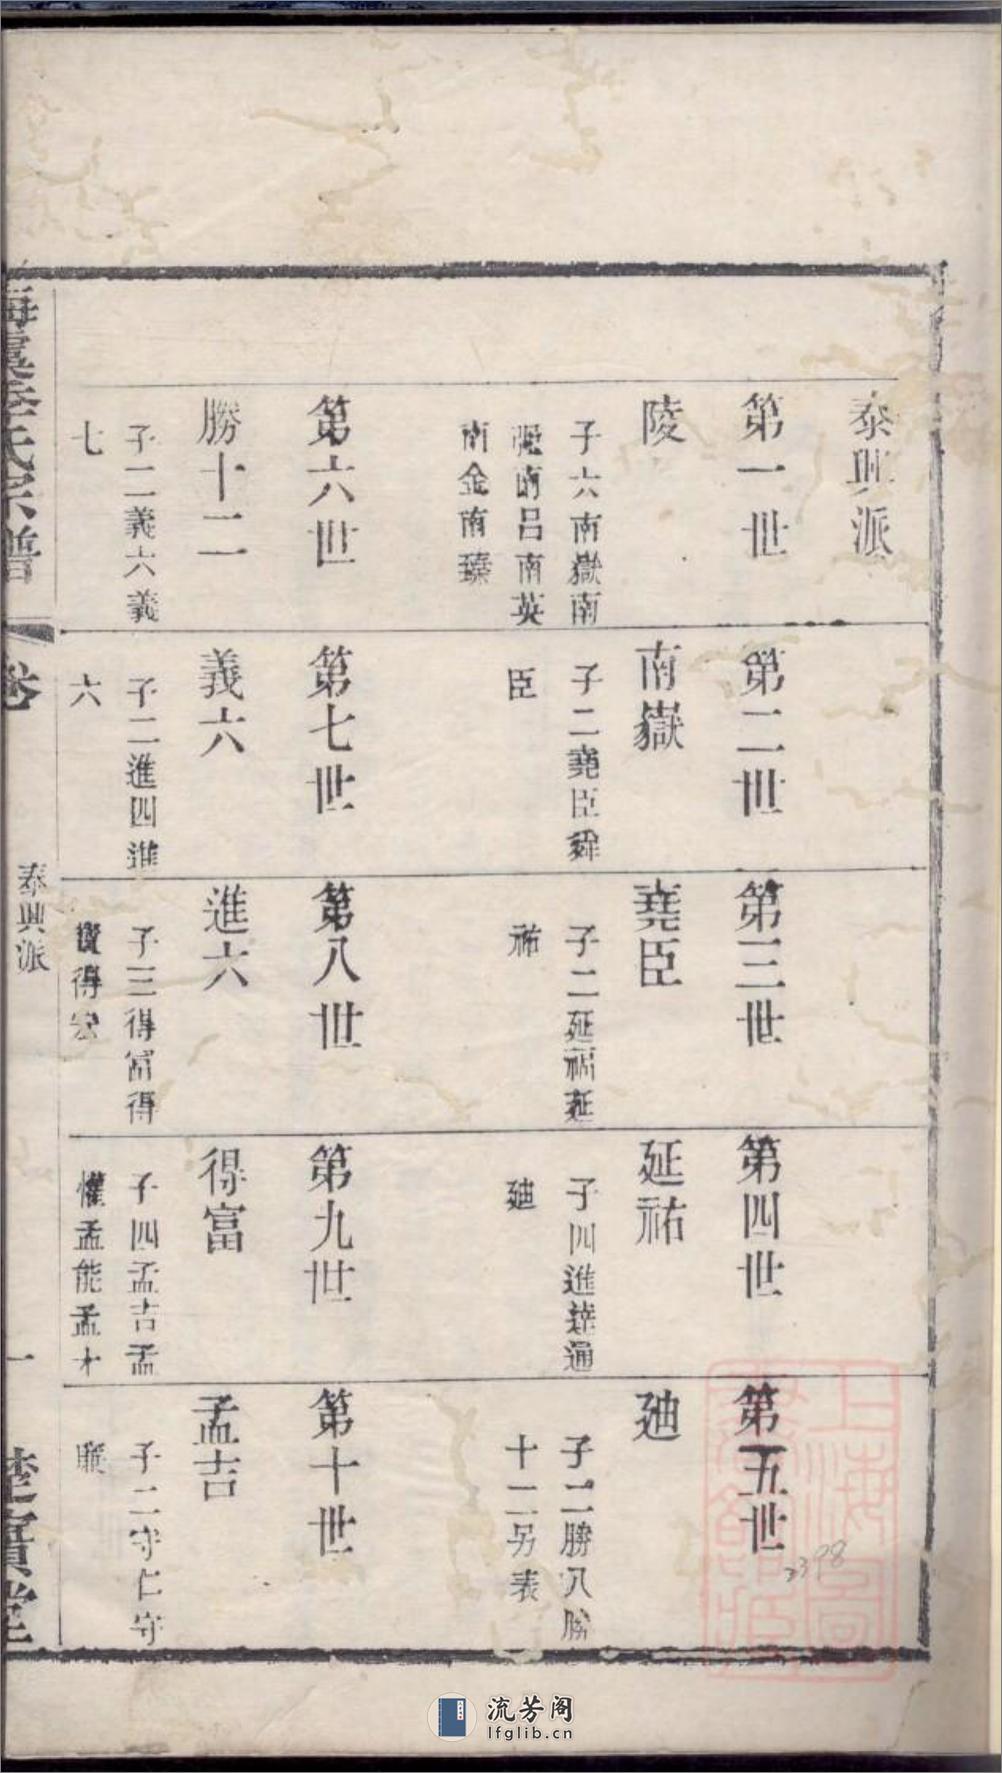 泰興派
第一世
陵
子六南嶽南
南呂南英
南金南臻
第二世
南嶽
子二堯臣舜
臣
第三世
堯臣
子二延福延
祐
第四世
延祐
子四進達通
廸
第五世
廸
子二勝八勝
十二另表
第六世
勝十二
子二義六義
七
第七世
義六
子二進四進
六
第八世
進六
子三得富得
寶得宏
第九世
得富
子四孟吉孟
懽孟能孟才
第十世
孟吉
子二守仁守
海虞季氏宗譜
卷
泰興派
一
楚寶堂
上海圖書館藏
2398
流芳阁
lfglib.cn